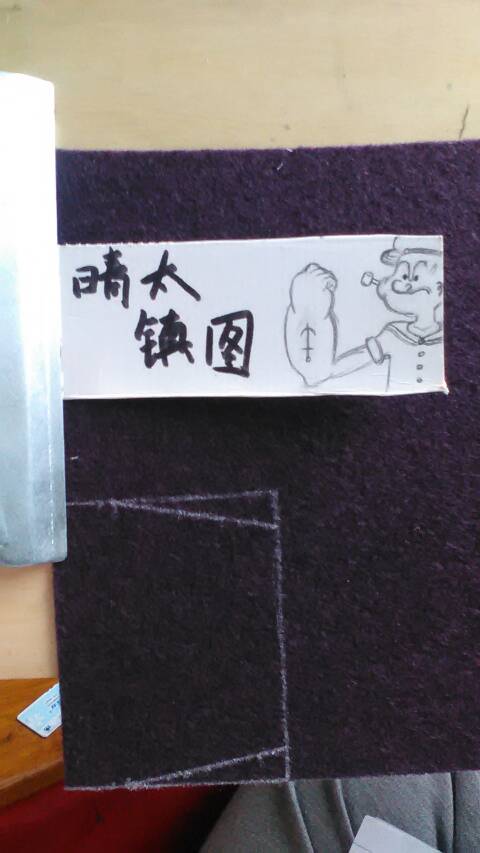 晴太
镇图